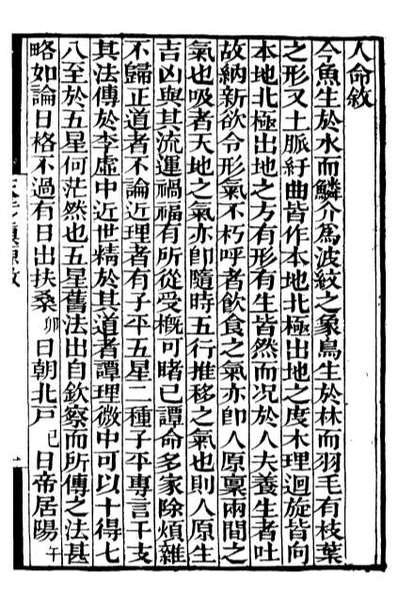 人命敘
今魚生於水而鱗介為波紋之象鳥生於林而羽毛有枝葉
之形又土脈紆曲皆作本地北極出地之度木理迴旋皆向
本地北極出地之方有形有生皆然而况於人夫養生者吐
故納新欲令形氣不朽呼者飲食之氣亦卽人原稟兩間之
氣也吸者天地之氣亦卽隨時五行推移之氣也則人原生
吉凶與其流運禍福有所從受槪可睹已譚命多家除煩雜
不歸正道者不論近理者有子平五星二種子平專言干支
其法傳於李虛中近世精於其道者譚理微中可以十得七
八至於五星何茫然也五星舊法出自欽察而所傳之法甚
略如論日格不過有日出扶桑卯日朝北戸巳日帝居陽午